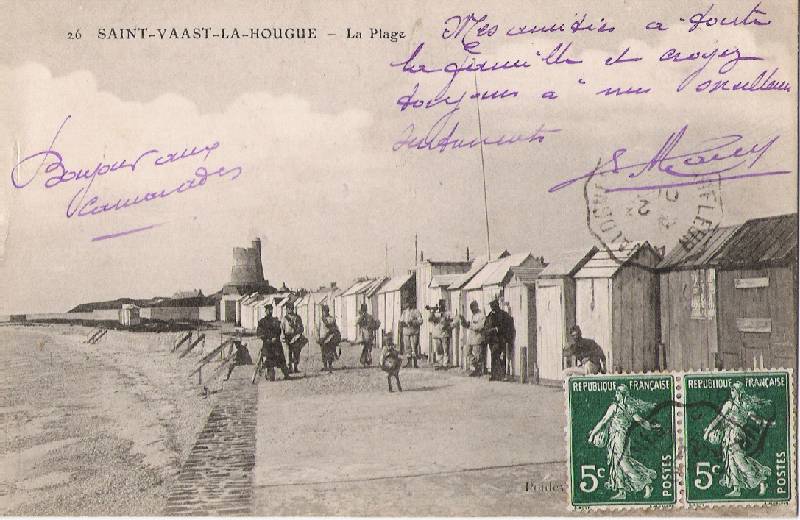 26 SAINT-VAAST-LA-HOUGUE - La Plage
Mes amitiés à toute
la famille et croyez
toujours à mes meilleurs
sentiments
Bonjour aux
camarades
RÉPUBLIQUE FRANÇAISE
5c
POSTES
RÉPUBLIQUE FRANÇAISE
5c
POSTES